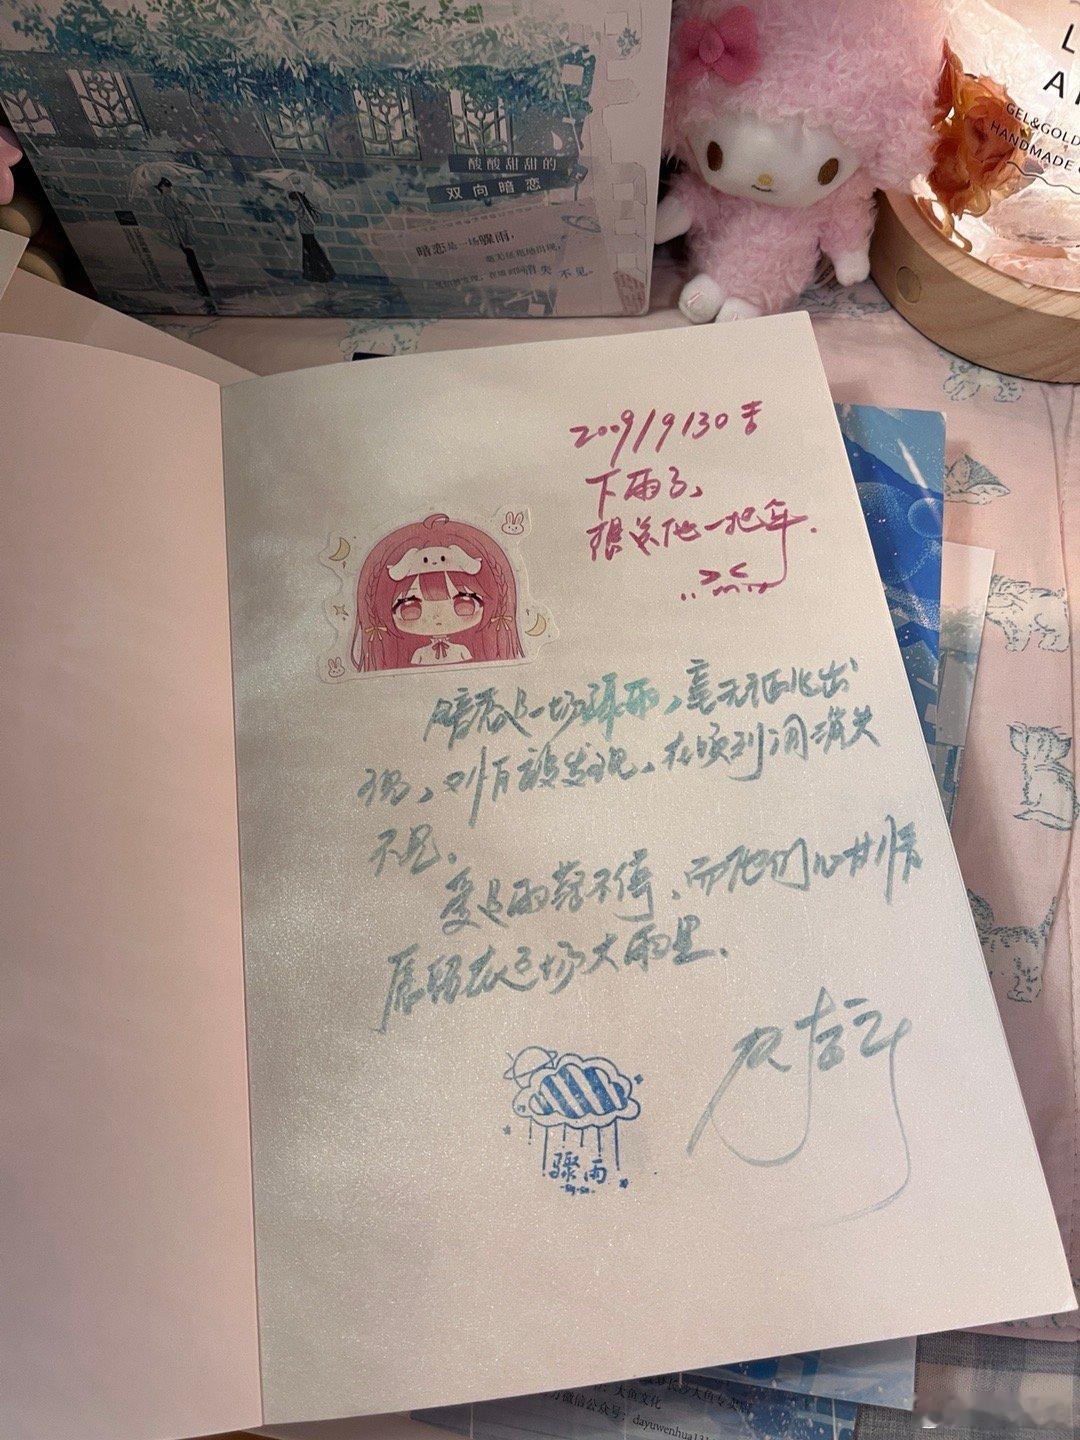 酸酸甜甜的
双向暗恋
暗恋是一场骤雨，
毫无征兆地出现，
在顷刻间消失不见。
L
A
GEL&GOLD
HANDMADE
2009/9/30
下雨了，
想送他一把伞.
暗恋是一场骤雨，毫无征兆出
现，刚有被发现，在顷刻间消失
不见.
爱是雨落不停，而他们心甘情
愿留在这场大雨里.
骤雨
长沙大鱼专卖
：大鱼文化
方微信公众号：dayuwenhua131